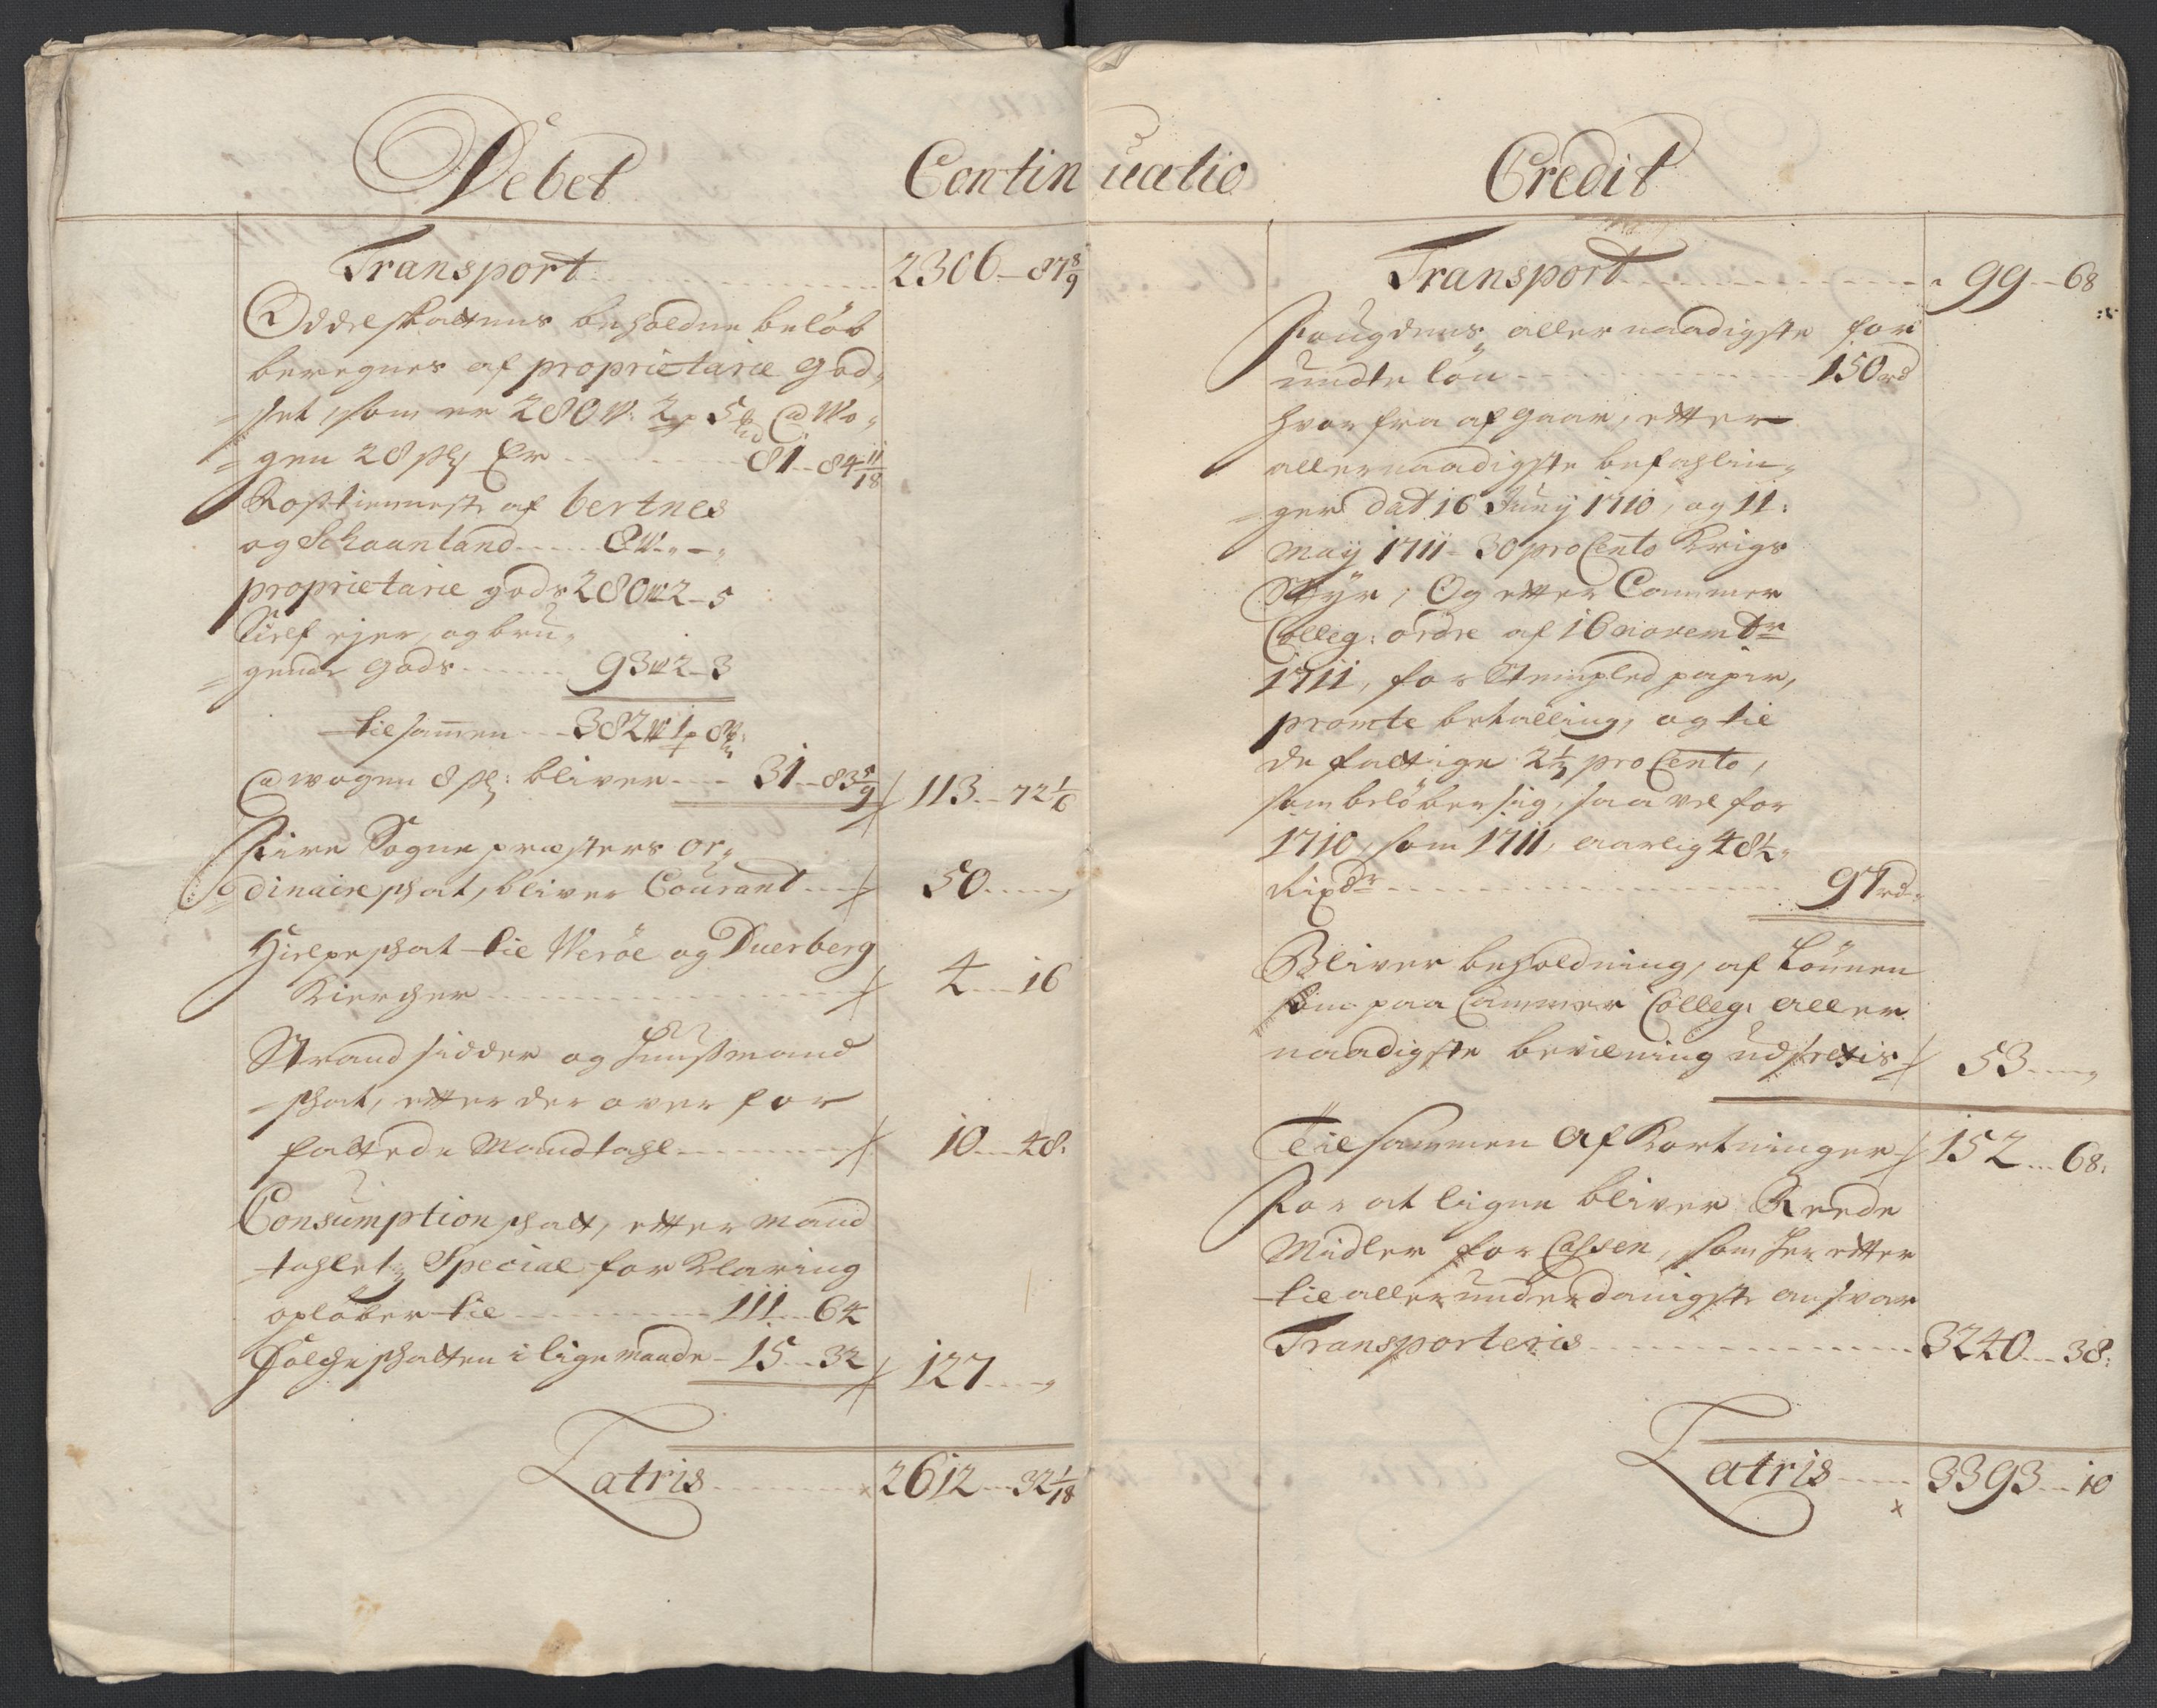 Debet
Continuatio
Credit
Transport 2306 - 87 8/9
Oddelskattens beholdne beløb
beregnes af proprietarie God„
=set som er 280 W: 2 p 5 @ Wo„
=gen 28 sk Er 81 - 84 11/18
Rostienneste af bertnes
og Schaanland 8 W „ - „
proprietarie gods 280 W 2 - 5
Sielf ejer, og bru„
=gende Gods 93 W 2 - 3
tilsamen 382 W 1 p 8
@ wogen 8 sk: bliver 31 - 83 5/9 113 - 72 1/6
Fire Sogne præsters or„
=dinaire skat, bliver Courant 50 „
Hielpe skat til Werøe og Duerberg
Kiercher 4 - 16
Strandsidder og Huusmand
=skat, efter der over for
fattede Mandtahl 10 - 48:
Consumption skatt, efter Mand
tahlets Special forklaring
opløber til 111 - 64
Folche skatten i lige maade 15 - 32 127 „
Latris 2612 - 32 1/18
Transport 99 - 68
Fougdens allernaadigste for
undte løn 150 rd
hvor fra afgaar, etter
allernaadigste befahlin„
=ger dat 16 Juny 1710, og 11:
May 1711 - 30 pro Cento Krigs
Styr, Og etter Cammer
Colleg: ordre af 16 novembr
1711, for Stempled papir,
promte betalling, og til
de fattige 2 1/3 pro Cento,
som beløber sig, saa vel for
1710, som 1711, aarlig 48 1/2 „
Rixdr 97 rd „
Bliver beholdning, af Lønnen
som paa Cammer Colleg: aller
naadigste bevilning udføris 53 „
Tilsammen Af Kortninger 152 - 68:
For at ligne bliver Reede
Midler for Cassen, som her etter
til allerunderdanigste ansvar
Transporteris 3240 - 38:
Latris 3393 - 10